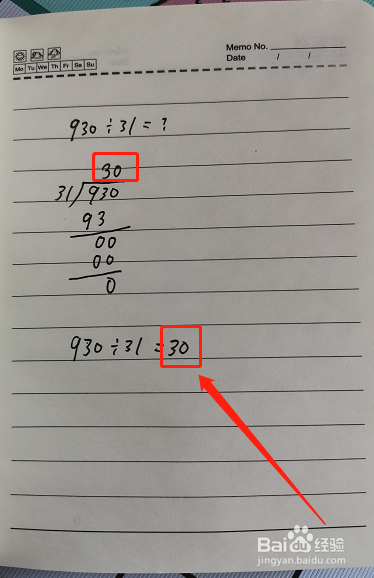 Memo No.
Mo Tu We Th Fr Sa Su
Date / /
930÷31=?
30
31/930
93
00
00
0
930÷31=30
Baidu 经验
jingyan.baidu.com